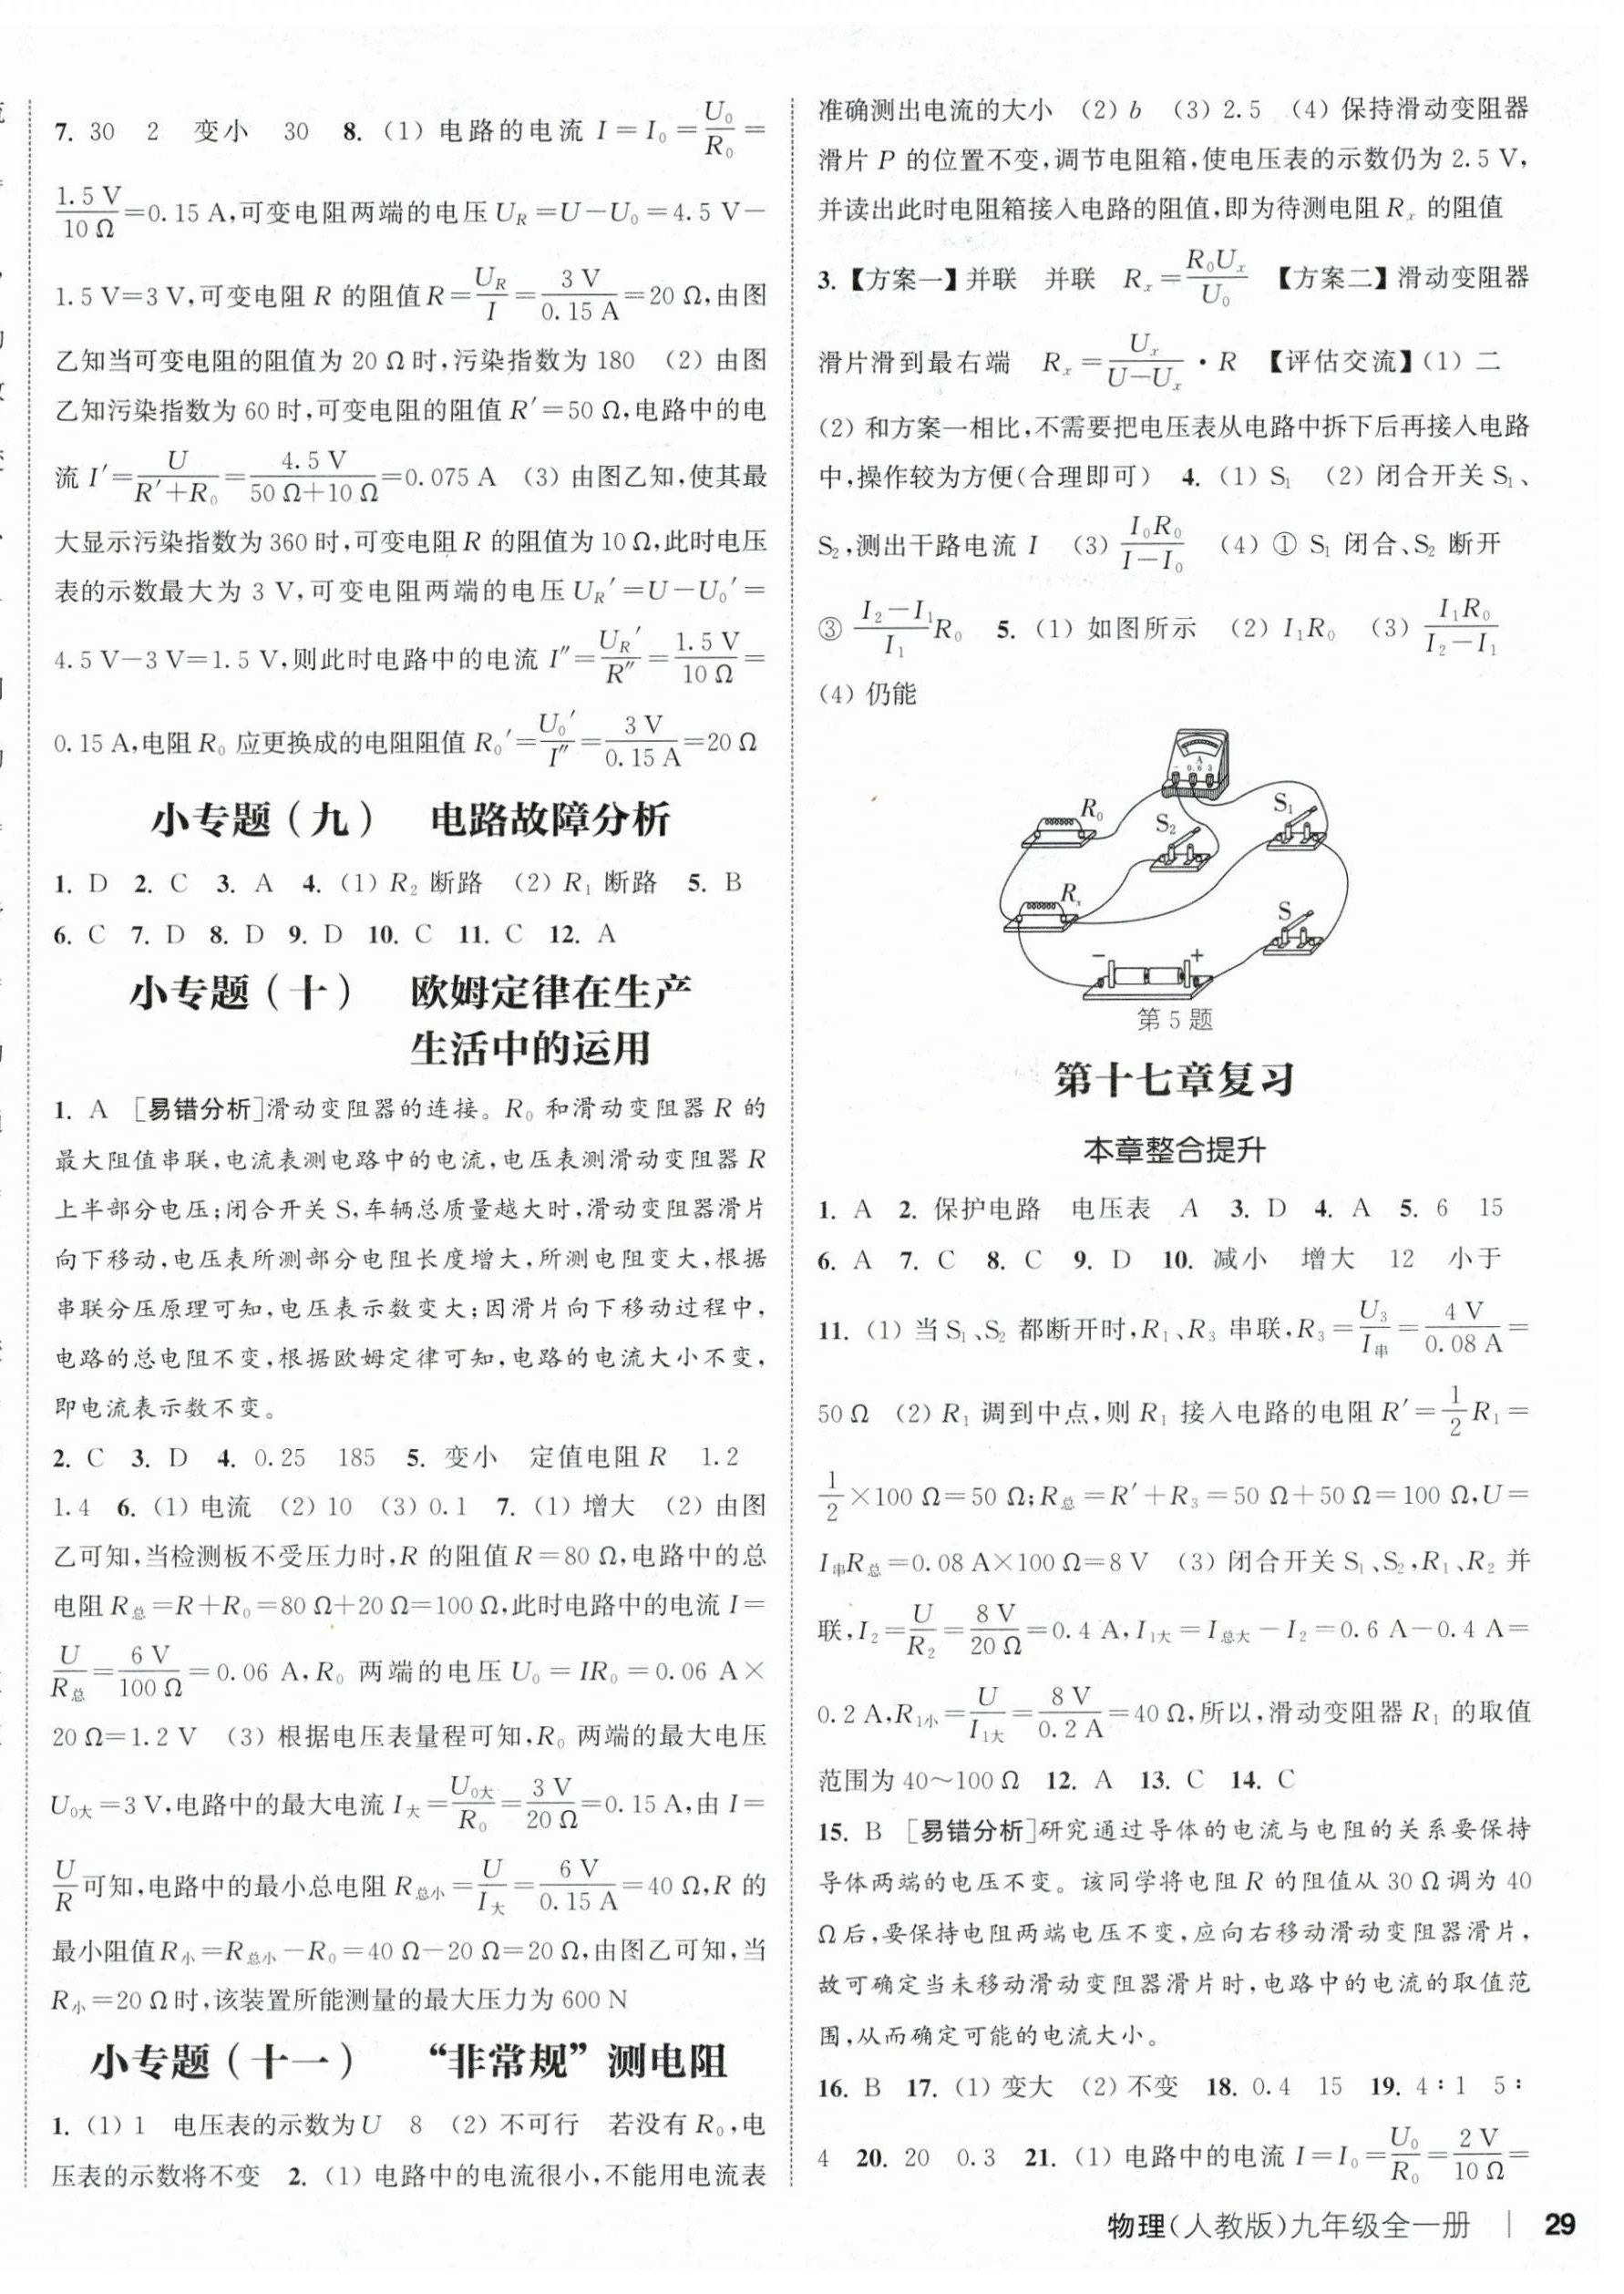 7. 30 2 变小 30 8. (1) 电路的电流 I=I₀=U₀/R₀=
1.5 V/10 Ω=0.15 A,可变电阻两端的电压 U_R=U-U₀=4.5 V-
1.5 V=3 V,可变电阻 R 的阻值 R=U_R/I=3 V/0.15 A=20 Ω,由图
乙知当可变电阻的阻值为 20 Ω 时,污染指数为 180 (2) 由图
乙知污染指数为 60 时,可变电阻的阻值 R′=50 Ω,电路中的电
流 I′=U/(R′+R₀)=4.5 V/(50 Ω+10 Ω)=0.075 A (3) 由图乙知,使其最
大显示污染指数为 360 时,可变电阻 R 的阻值为 10 Ω,此时电压
表的示数最大为 3 V,可变电阻两端的电压 U_R′=U-U₀′=
4.5 V-3 V=1.5 V,则此时电路中的电流 I″=U_R′/R″=1.5 V/10 Ω=
0.15 A,电阻 R₀ 应更换成的电阻阻值 R₀′=U₀′/I″=3 V/0.15 A=20 Ω
小专题(九) 电路故障分析
1. D 2. C 3. A 4. (1) R₂ 断路 (2) R₁ 断路 5. B
6. C 7. D 8. D 9. D 10. C 11. C 12. A
小专题(十) 欧姆定律在生产
生活中的运用
1. A [易错分析]滑动变阻器的连接。R₀ 和滑动变阻器 R 的
最大阻值串联,电流表测电路中的电流,电压表测滑动变阻器 R
上半部分电压;闭合开关 S,车辆总质量越大时,滑动变阻器滑片
向下移动,电压表所测部分电阻长度增大,所测电阻变大,根据
串联分压原理可知,电压表示数变大;因滑片向下移动过程中,
电路的总电阻不变,根据欧姆定律可知,电路的电流大小不变,
即电流表示数不变。
2. C 3. D 4. 0.25 185 5. 变小 定值电阻 R 1.2
1.4 6. (1) 电流 (2) 10 (3) 0.1 7. (1) 增大 (2) 由图
乙可知,当检测板不受压力时,R 的阻值 R=80 Ω,电路中的总
电阻 R总=R+R₀=80 Ω+20 Ω=100 Ω,此时电路中的电流 I=
U/R总=6 V/100 Ω=0.06 A,R₀ 两端的电压 U₀=IR₀=0.06 A×
20 Ω=1.2 V (3) 根据电压表量程可知,R₀ 两端的最大电压
U₀大=3 V,电路中的最大电流 I大=U₀大/R₀=3 V/20 Ω=0.15 A,由 I=
U/R可知,电路中的最小总电阻 R总小=U/I大=6 V/0.15 A=40 Ω,R 的
最小阻值 R小=R总小-R₀=40 Ω-20 Ω=20 Ω,由图乙可知,当
R小=20 Ω 时,该装置所能测量的最大压力为 600 N
小专题(十一) “非常规”测电阻
1. (1) 1 电压表的示数为 U 8 (2) 不可行 若没有 R₀,电
压表的示数将不变 2. (1) 电路中的电流很小,不能用电流表
准确测出电流的大小 (2) b (3) 2.5 (4) 保持滑动变阻器
滑片 P 的位置不变,调节电阻箱,使电压表的示数仍为 2.5 V,
并读出此时电阻箱接入电路的阻值,即为待测电阻 Rₓ 的阻值
3.【方案一】并联 并联 Rₓ=R₀Uₓ/U₀ 【方案二】滑动变阻器
滑片滑到最右端 Rₓ=Uₓ/(U-Uₓ)·R 【评估交流】(1) 二
(2) 和方案一相比,不需要把电压表从电路中拆下后再接入电路
中,操作较为方便(合理即可) 4. (1) S₁ (2) 闭合开关 S₁、
S₂,测出干路电流 I (3) I₀R₀/(I-I₀) (4) ① S₁ 闭合、S₂ 断开
③ (I₂-I₁)/I₁ R₀ 5. (1) 如图所示 (2) I₁R₀ (3) I₁R₀/(I₂-I₁)
(4) 仍能
A
- 0.6 3
R₀
S₂
S₁
Rₓ
S
- +
第 5 题
第十七章复习
本章整合提升
1. A 2. 保护电路 电压表 A 3. D 4. A 5. 6 15
6. A 7. C 8. C 9. D 10. 减小 增大 12 小于
11. (1) 当 S₁、S₂ 都断开时,R₁、R₃ 串联,R₃=U₃/I串=4 V/0.08 A=
50 Ω (2) R₁ 调到中点,则 R₁ 接入电路的电阻 R′=1/2 R₁=
1/2×100 Ω=50 Ω;R总=R′+R₃=50 Ω+50 Ω=100 Ω,U=
I串R总=0.08 A×100 Ω=8 V (3) 闭合开关 S₁、S₂,R₁、R₂ 并
联,I₂=U/R₂=8 V/20 Ω=0.4 A,I₁大=I总大-I₂=0.6 A-0.4 A=
0.2 A,R₁小=U/I₁大=8 V/0.2 A=40 Ω,所以,滑动变阻器 R₁ 的取值
范围为 40～100 Ω 12. A 13. C 14. C
15. B [易错分析]研究通过导体的电流与电阻的关系要保持
导体两端的电压不变。该同学将电阻 R 的阻值从 30 Ω 调为 40
Ω 后,要保持电阻两端电压不变,应向右移动滑动变阻器滑片,
故可确定当未移动滑动变阻器滑片时,电路中的电流的取值范
围,从而确定可能的电流大小。
16. B 17. (1) 变大 (2) 不变 18. 0.4 15 19. 4∶1 5∶
4 20. 20 0.3 21. (1) 电路中的电流 I=I₀=U₀/R₀=2 V/10 Ω=
物理(人教版)九年级全一册 | 29